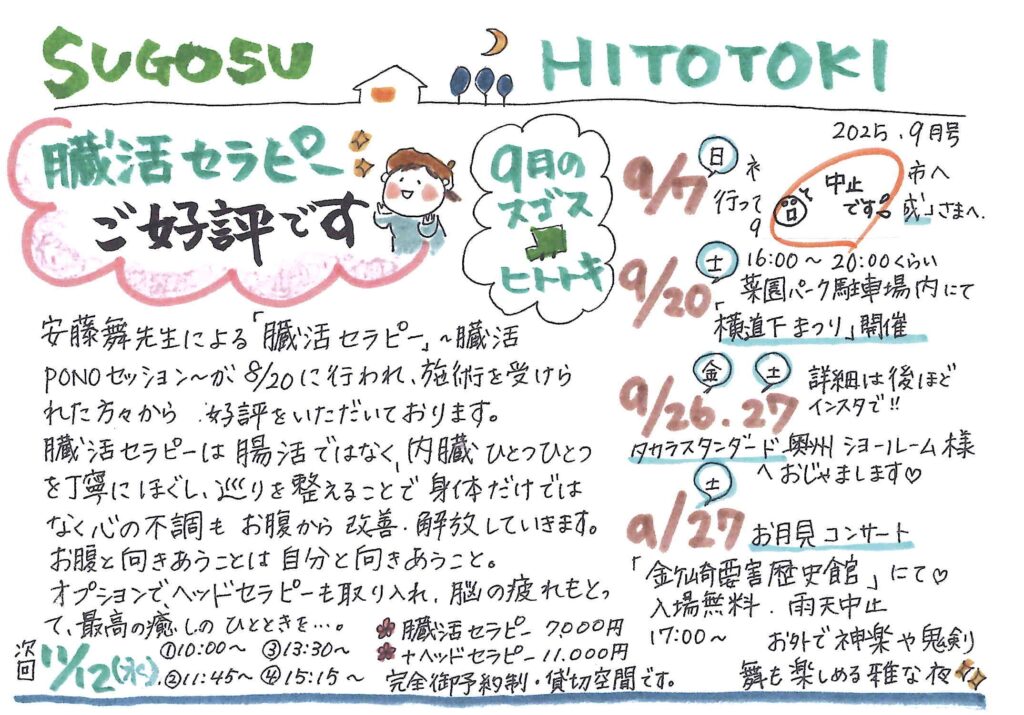 SUGOSU HITOTOKI
2025.9月号
臓活セラピー
ご好評です
9月の
スゴス
ヒトトキ
安藤舞先生による「臓活セラピー」~臓活
PONOセッション~が 8/20に行われ、施術を受けら
れた方々から 好評をいただいております。
臓活セラピーは腸活ではなく、内臓ひとつひとつ
を丁寧にほぐし、巡りを整えることで身体だけでは
なく心の不調も お腹から 改善・解放していきます。
お腹と向きあうことは自分と向きあうこと。
オプションでヘッドセラピーも取り入れ、脳の疲れもとっ
て、最高の癒しの ひとときを…。
臓活セラピー 7,000円
+ヘッドセラピー 11,000円
完全御予約制・貸切空間です。
次回 11/12(水)
①10:00~ ③13:30~
②11:45~ ④15:15~
9/7 日
市へ
行って
さまへ。
9
中止
です。
9/20 土 16:00~20:00くらい
薬園パーク駐車場内にて
「横道下まつり」開催
9/26.27 金 土 詳細は後ほど
インスタで!!
タカラスタンダード奥州ショールーム様
へおじゃまします♡
9/27 土 お月見コンサート
「金ケ崎要害歴史館」にて♡
入場無料.雨天中止
17:00~ お外で神楽や鬼剣
舞も楽しめる雅な夜